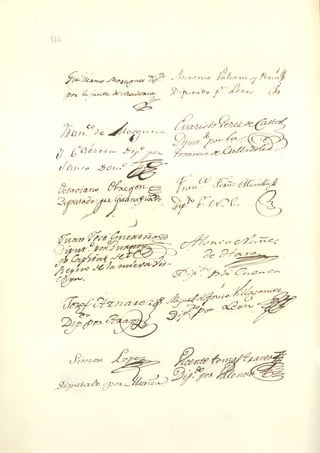 Guillermo Moragues Dip.do
por la junta de Mallorca
Antonio Valcarce y Peña
Diputado p.r Leon
Fran.co de Mosquera
y Cabrera Dip.o por
Santo Dom.o
Evaristo Perez de Castro
Diput.o por la
Provincia de Valladolid
Octaviano Obregon
Diputado por Guanajuato
Fran.co
Dip.o
Juan José Guereña
Diput.o por Durango
Capital
Reyno de la nueva
Alonso Nuñez
de Haro
Dip.o por Cuenca
José Aznarez
Dip.do por Aragon
Miguel Alfonso Villagomez
Dip.o por Leon
Simon Lopez
Diputado por Murcia
Vicente Tomas Traver
Dip.do por Valencia